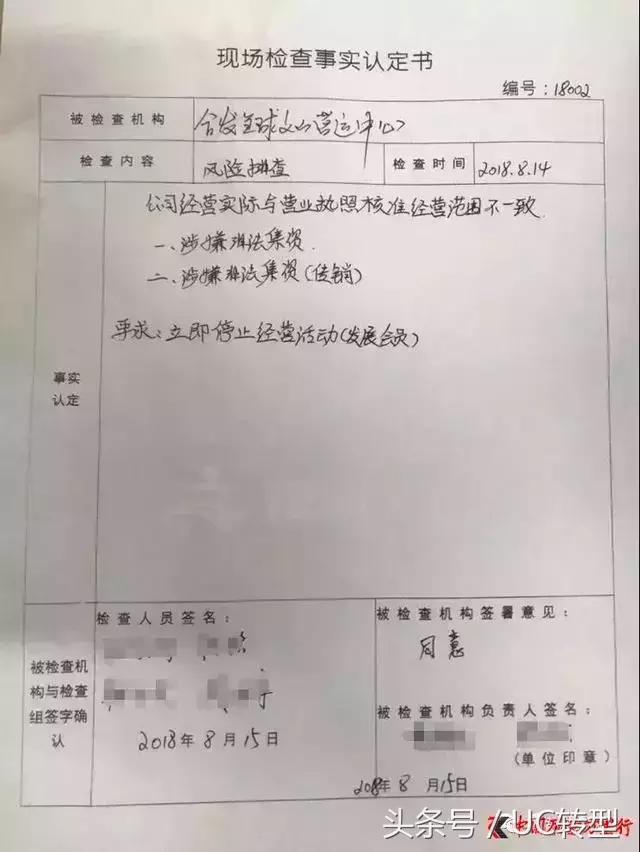 现场检查事实认定书
编号:18002
被检查机构 合发全球文山营运中心
检查内容 风险排查 检查时间 2018.8.14
公司经营实际与营业执照核准经营范围不一致.
一、涉嫌非法集资.
二、涉嫌非法集资(传销)
要求:立即停止经营活动(发展会员)
事实
认定
检查人员签名:
2018年8月15日
被检查机
构与检查
组签字确
认
被检查机构签署意见:
同意
被检查机构负责人签名:
(单位印章)
2018年8月15日
头条号/UC转型